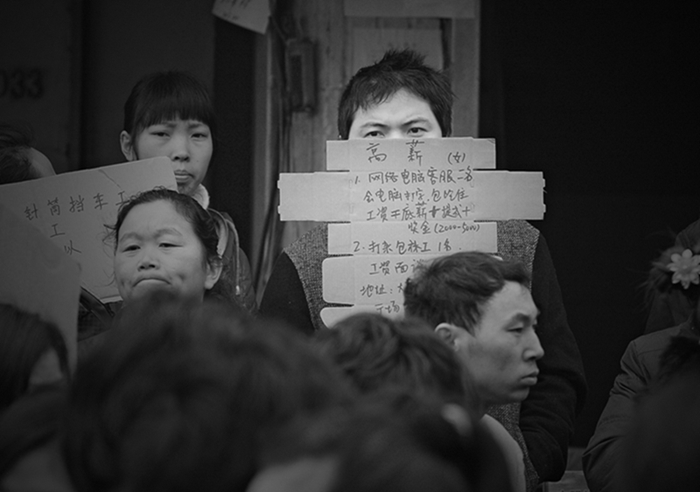 033
针筒挡车工
工
以
高薪 (女)
1. 网络电脑客服二名
会电脑打字.包吃住
工资=底薪+提成+
奖金(2000-5000)
2. 打杂包袜工 1名.
工资面谈
地址: